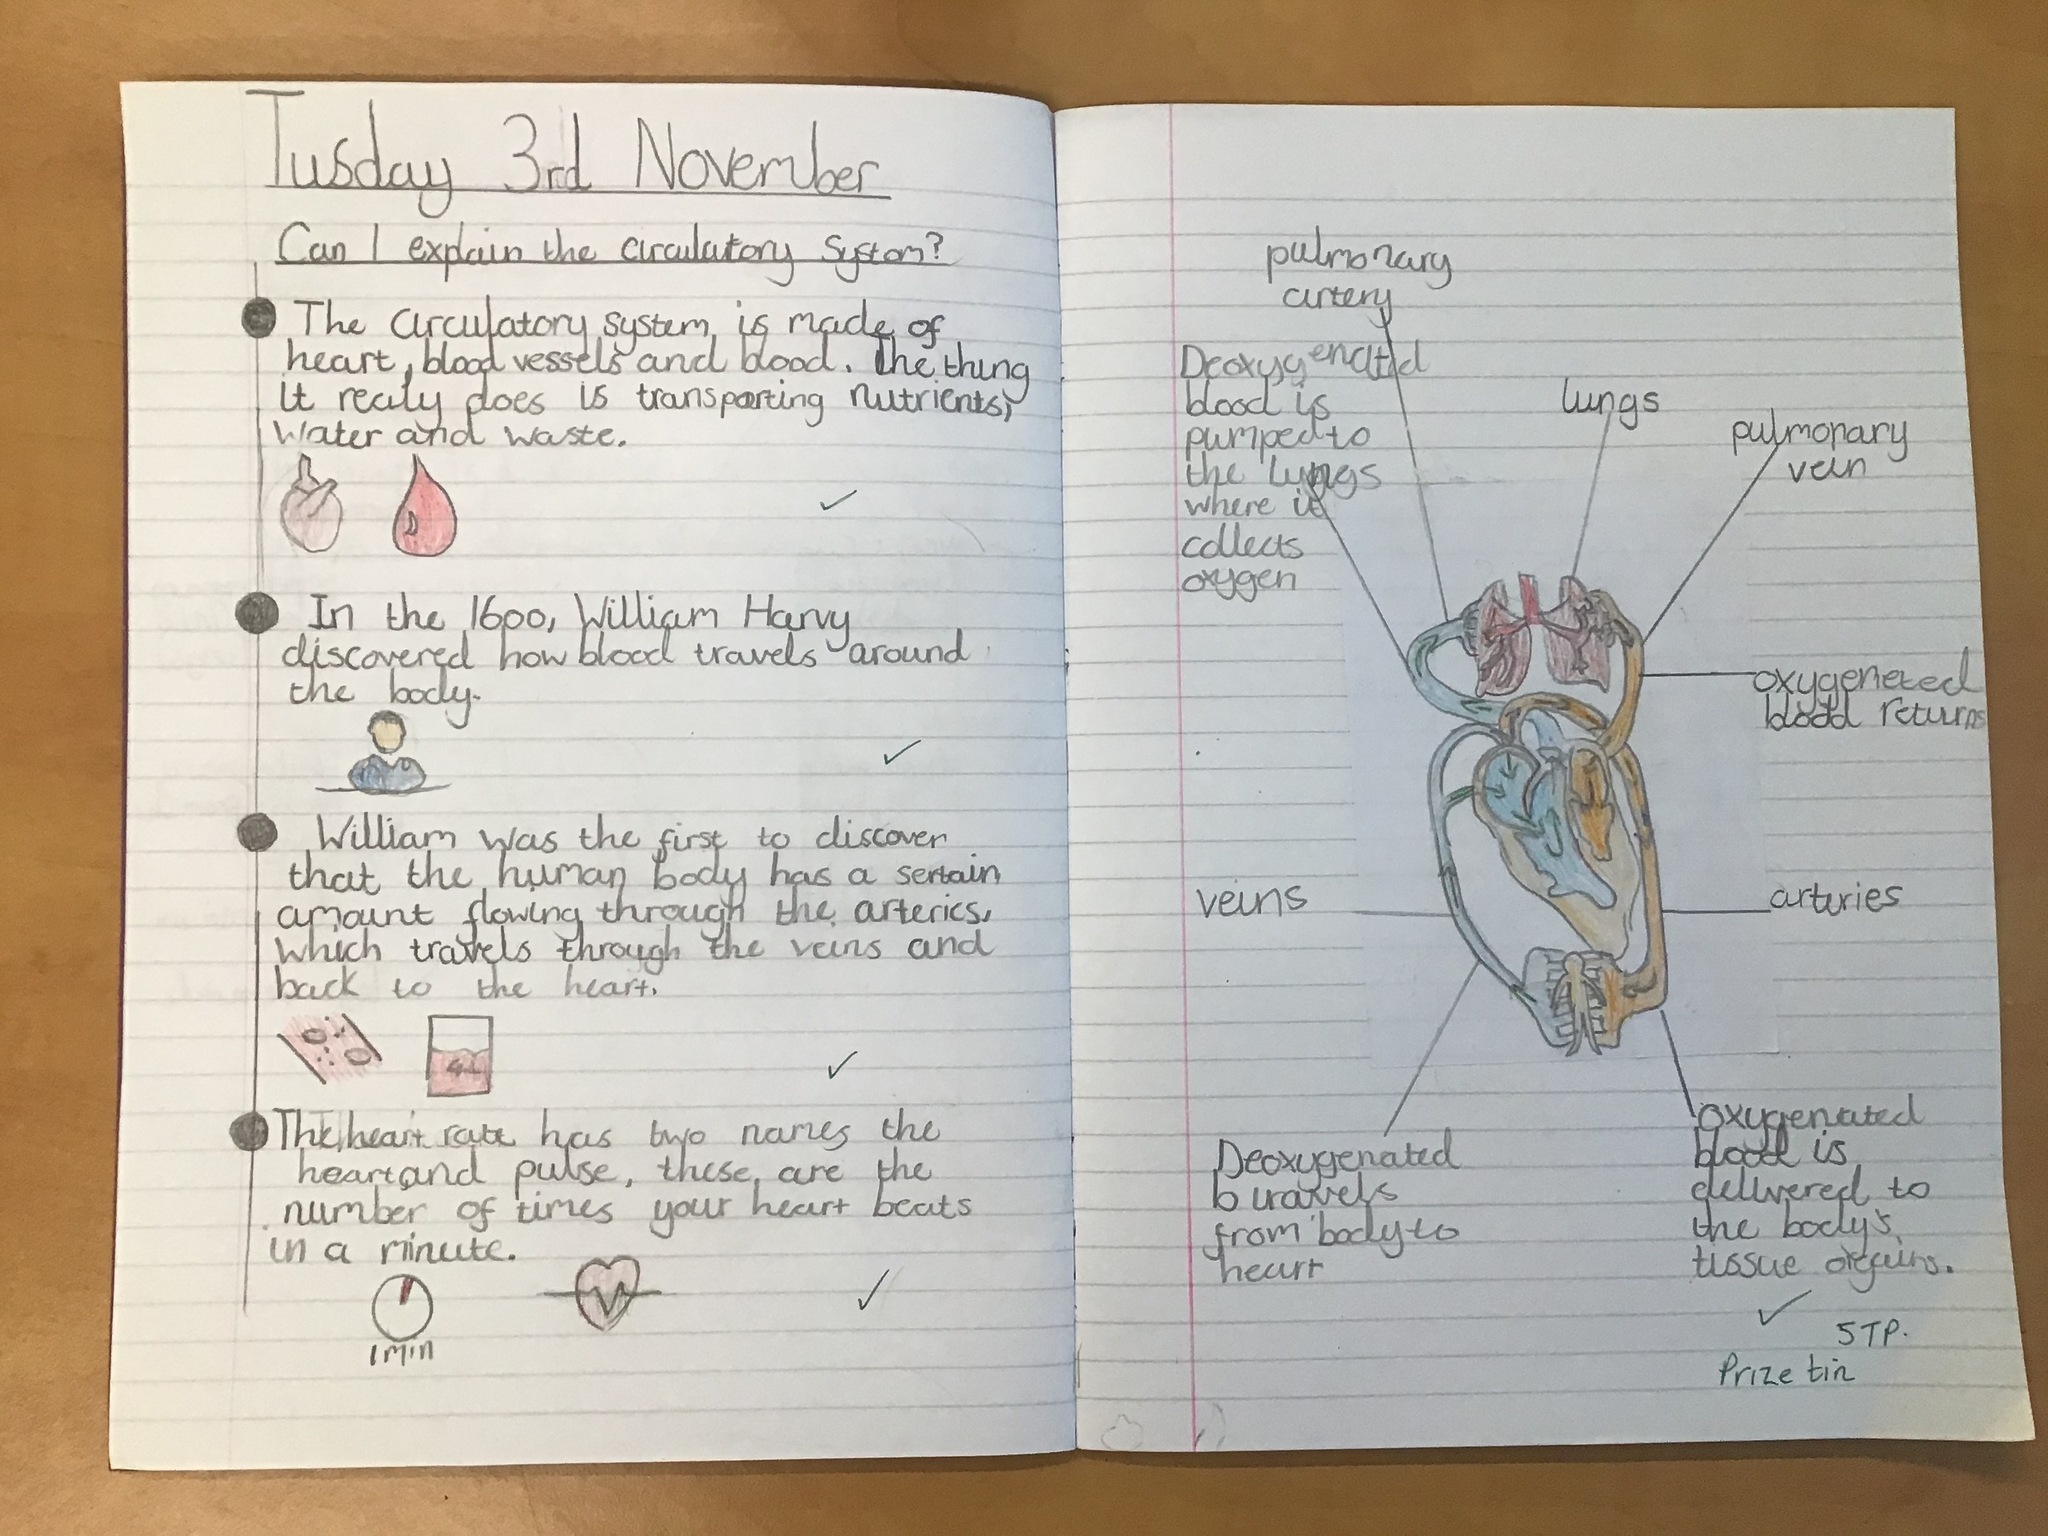 Tusday 3rd November
Can I explain the circulatory system?
The circulatory system is made of
heart, blood vessels and blood. The thing
it realy does is transporting nutrients,
water and waste.
In the 1600, William Harvy
discovered how blood travels around
the body.
William was the first to discover
that the human body has a sertain
amount flowing through the arteries,
which travels through the veins and
back to the heart.
4L
The heart rate has two names the
heart and pulse, these are the
number of times your heart beats
in a minute.
1 min
pulmonary
artery
Deoxygenated
blood is
pumped to
the lungs
where it
collects
oxygen
lungs
pulmonary
vein
oxygeneted
blood returns
veins
arteries
Deoxygenated
b travels
from body to
heart
oxygenated
blood is
delivered to
the body's
tissue organs.
5TP.
Prize tin